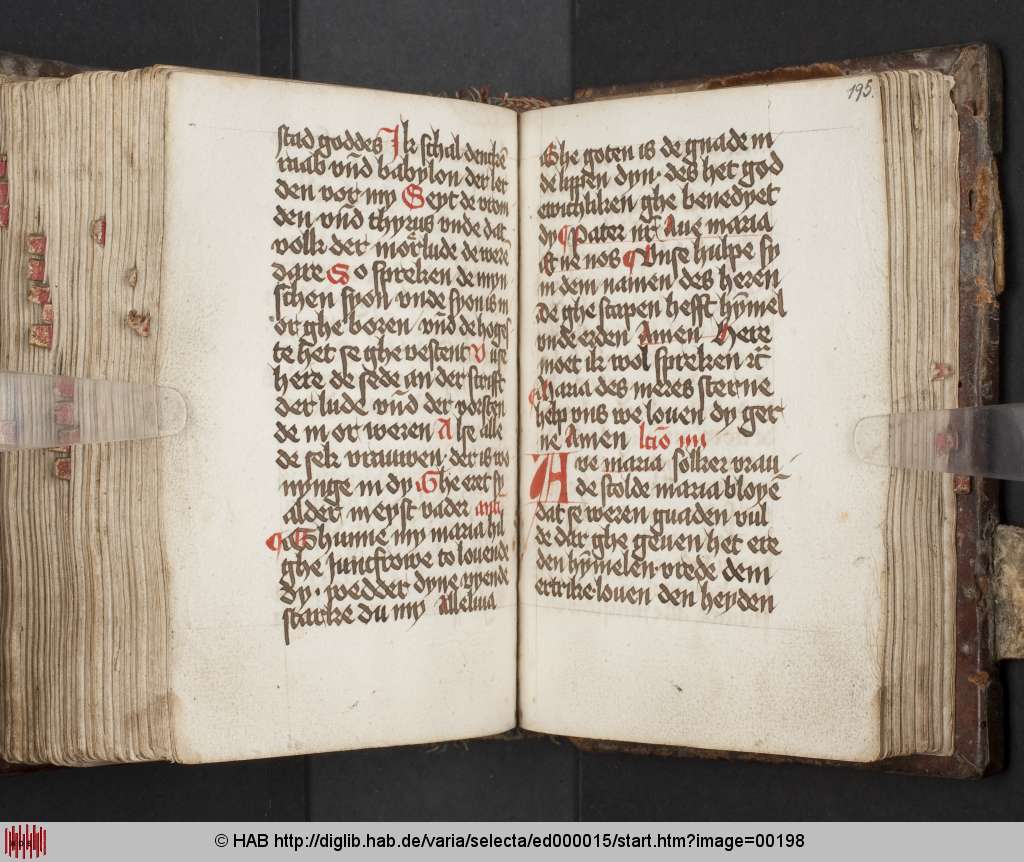 stad goddes Ik schal dencken
raab vnd babylon der let
den vor my Seyt de vrom
den vnd thyrus vnde dat
volk der morlude de weren
dare So spreken de myn
schen syon vnde syon is in
or ghe boren vnd de hoges
te het se ghe vestent Vnse
here de sede an der scrift
der lude vnd der vorsten
de in or weren Alse alle
de sek vrauwen der is wo
nynge in dy Ghe eret sy
alder meyst vader
Ghunne my maria hil
ghe juncfrowe to lovende
dy wedder dyne vyende
starke du my Alleluia
195.
Ghe goten is de gnade in
de lippen dyn des het god
ewichliken ghe benedyet
dy Pater nr Aue maria
Et ne nos Vnse hulpe sy
in dem namen des heren
de ghe scapen hefft hymel
vnde erden Amen Here
moet ik wol spreken
Maria des meres sterne
help vns we louen dy ger
ne Amen lctio iiii
Aue maria solker vrau
de stolde maria bloyen
dat se weren gnaden vul
de dar ghe geuen het ere
den hymelen vrede dem
ertrike louen den heyden
© HAB http://diglib.hab.de/varia/selecta/ed000015/start.htm?image=00198